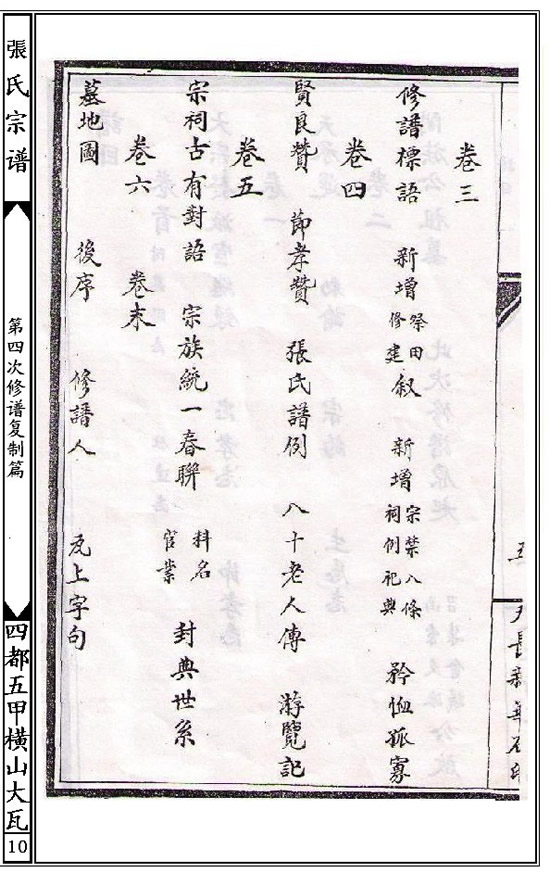 卷三
修譜標語 新增祭田修建叙 新增宗禁八條祠例祀典 矜恤孤寡
卷四
賢良贊 節孝贊 張氏譜例 八十老人傳 游覽記
卷五
宗祠古有對語 宗族統一春聯 科名官業 封典世系
卷六 卷末
墓地圖 後序 修譜人 瓦上字句
張氏宗谱
第四次修谱复制篇
四都五甲横山大瓦
10